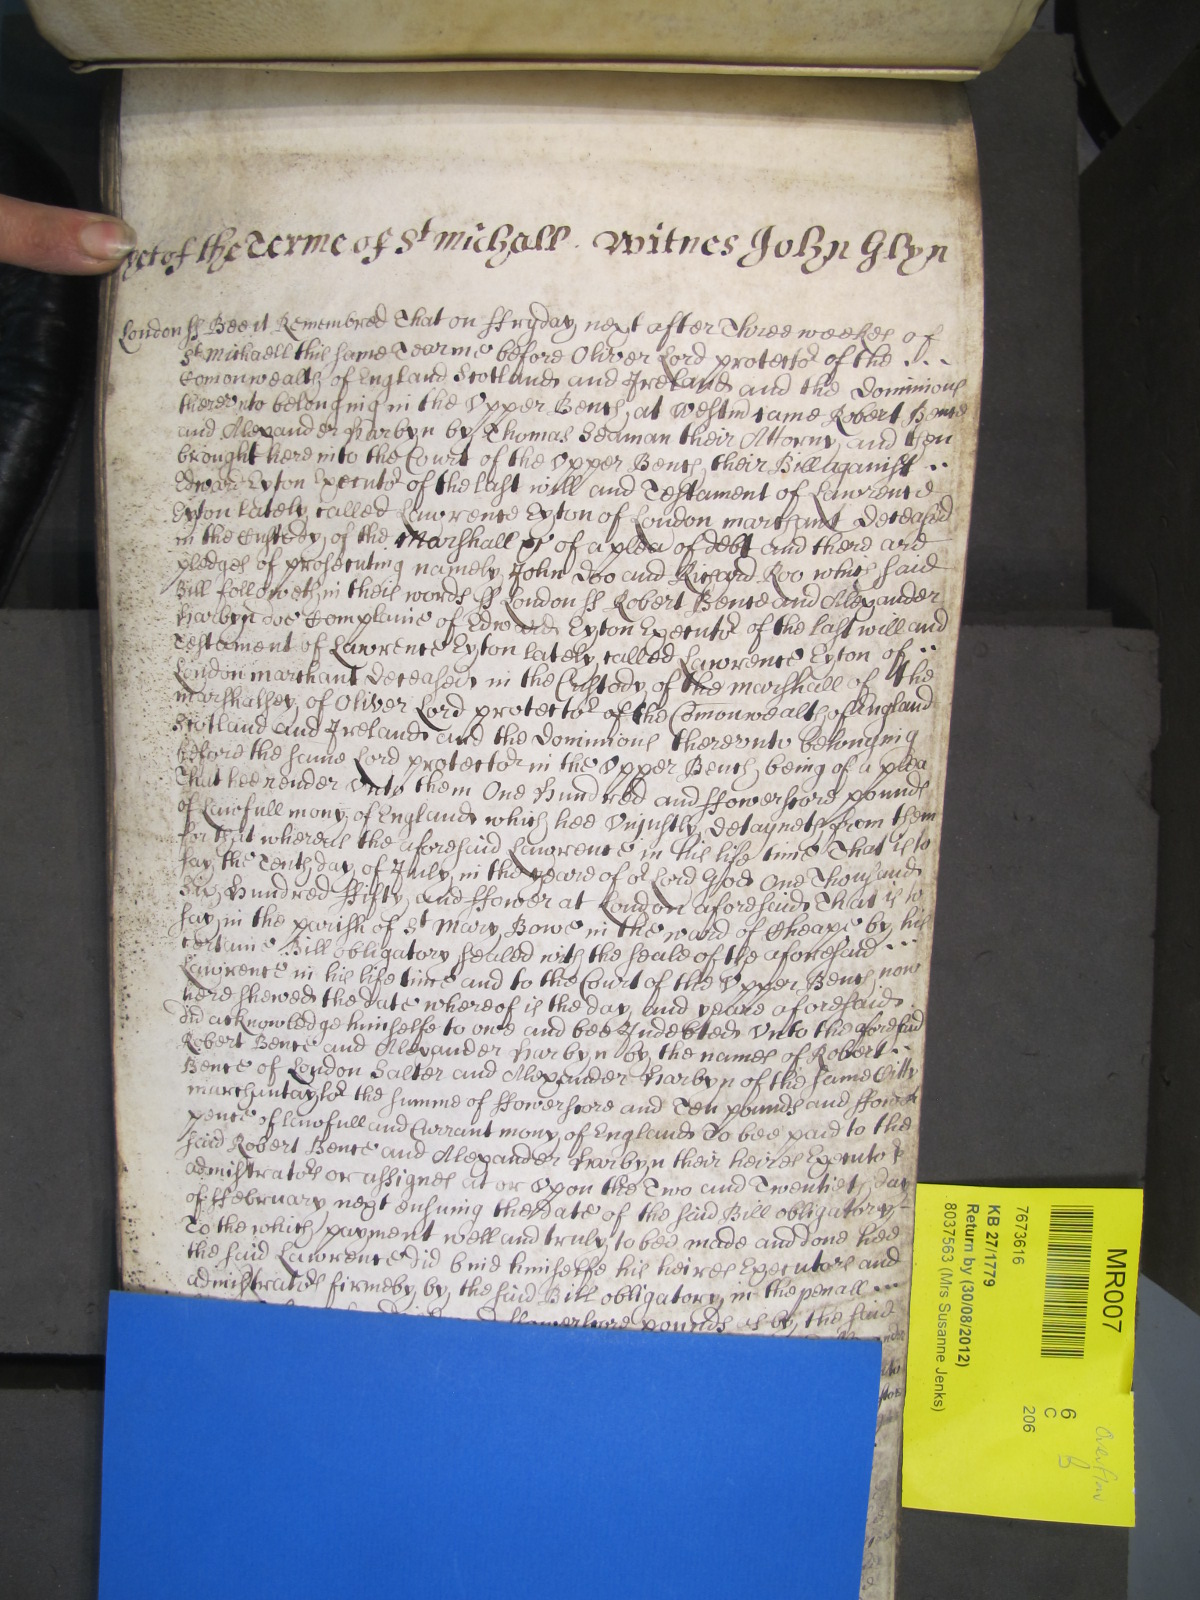 yet of the Terme of St Michaell. Witnes John Glyn
London ss Bee it Remembred That on ffryday next after Three weekes of
St Michaell this same Tearme before Oliver Lord protector of the
Comonwealth of England Scotland and Ireland and the Dominions
therevnto belonging in the Vpper Bench at Westm came Robert Bence
and Alexander Harbyn by Thomas Seaman their Attorny and then
brought here into the Court of the Vpper Bench their Bill against
Edward Eyton Executor of the last will and Testament of Lawrence
Eyton lately called Lawrence Eyton of London marchant deceased
in the Custody of the Marshall &c of a plea of debt and there are
pledges of prosecuting namely John Doo and Richard Roo which said
Bill followeth in theis words ss London ss Robert Bence and Alexander
Harbyn doe Complaine of Edward Eyton Executor of the last will and
Testament of Lawrence Eyton lately called Lawrence Eyton of
London marchant deceased in the Custody of the marshall of the
marshallsey of Oliver Lord protector of the Comonwealth of England
Scotland and Ireland and the Dominions therevnto belonging
before the same Lord protector in the Vpper Bench being of a plea
That hee render vnto them One Hundred and ffowerscore pounds
of Lawfull mony of England which hee vniustly detayneth from them
for that whereas the aforesaid Lawrence in his life time That is to
say the Tenth day of July in the yeare of or Lord God One Thousand
Six Hundred ffifty and ffower at London aforesaid That is to
say in the parish of St Mary Bowe in the ward of Cheape by his
certaine Bill obligatory sealed with the seale of the aforesaid
Lawrence in his life time and to the Court of the Vpper Bench now
here shewed the date whereof is the day and yeare aforesaid
did acknowledge himselfe to owe and bee Indebted vnto the aforesaid
Robert Bence and Alexander Harbyn by the names of Robert
Bence of London Salter and Alexander Harbyn of the same Citty
marchantaylor the summe of ffowerscore and Ten pounds and ffower
pence of lawfull and Currant mony of England To bee paid to the
said Robert Bence and Alexander Harbyn their heires Executors
admistrators or assignes at or vpon the Two and Twentieth day
of ffebruary next ensuing the date of the said Bill obligatory
To the which payment well and truly to bee made and done hee
the said Lawrence did bind himselfe his heires Executors and
admistrators firmely by the said Bill obligatory in the penall
pounds as by the said
MR007
7673616
KB 27/1779
Return by (30/08/2012)
8037563 (Mrs Susanne Jenks)
6
C
206
Overflow
B